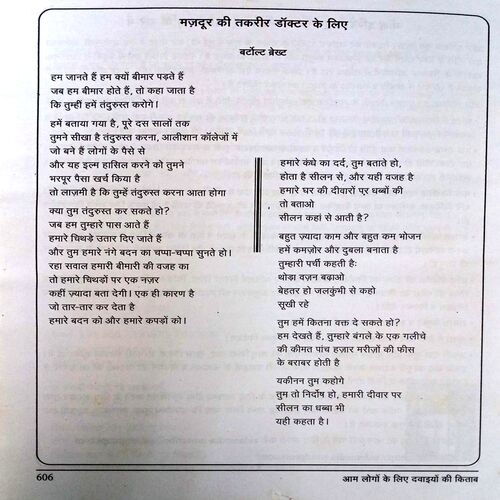 मज़दूर की तकरीर डॉक्टर के लिए
बर्टोल्ट ब्रेख्ट
हम जानते हैं हम क्यों बीमार पड़ते हैं
जब हम बीमार होते हैं, तो कहा जाता है
कि तुम्हीं हमें तंदुरुस्त करोगे।
हमें बताया गया है, पूरे दस सालों तक
तुमने सीखा है तंदुरुस्त करना, आलीशान कॉलेजों में
जो बने हैं लोगों के पैसे से
और यह इल्म हासिल करने को तुमने
भरपूर पैसा खर्च किया है
तो लाज़मी है कि तुम्हें तंदुरुस्त करना आता होगा
क्या तुम तंदुरुस्त कर सकते हो?
जब हम तुम्हारे पास आते हैं
हमारे चिथड़े उतार दिए जाते हैं
और तुम हमारे नंगे बदन का चप्पा-चप्पा सुनते हो।
रहा सवाल हमारी बीमारी की वजह का
तो हमारे चिथड़ों पर एक नज़र
कहीं ज़्यादा बता देगी। एक ही कारण है
जो तार-तार कर देता है
हमारे बदन को और हमारे कपड़ों को।
हमारे कंधे का दर्द, तुम बताते हो,
होता है सीलन से, और यही वजह है
हमारे घर की दीवारों पर धब्बों की
तो बताओ
सीलन कहां से आती है?
बहुत ज़्यादा काम और बहुत कम भोजन
हमें कमज़ोर और दुबला बनाता है
तुम्हारी पर्ची कहती हैः
थोड़ा वज़न बढ़ाओ
बेहतर हो जलकुंभी से कहो
सूखी रहे
तुम हमें कितना वक्त दे सकते हो?
हम देखते हैं, तुम्हारे बंगले के एक गलीचे
की कीमत पांच हज़ार मरीज़ों की फीस
के बराबर होती है
यकीनन तुम कहोगे
तुम तो निर्दोष हो, हमारी दीवार पर
सीलन का धब्बा भी
यही कहता है।
606
आम लोगों के लिए दवाइयों की किताब